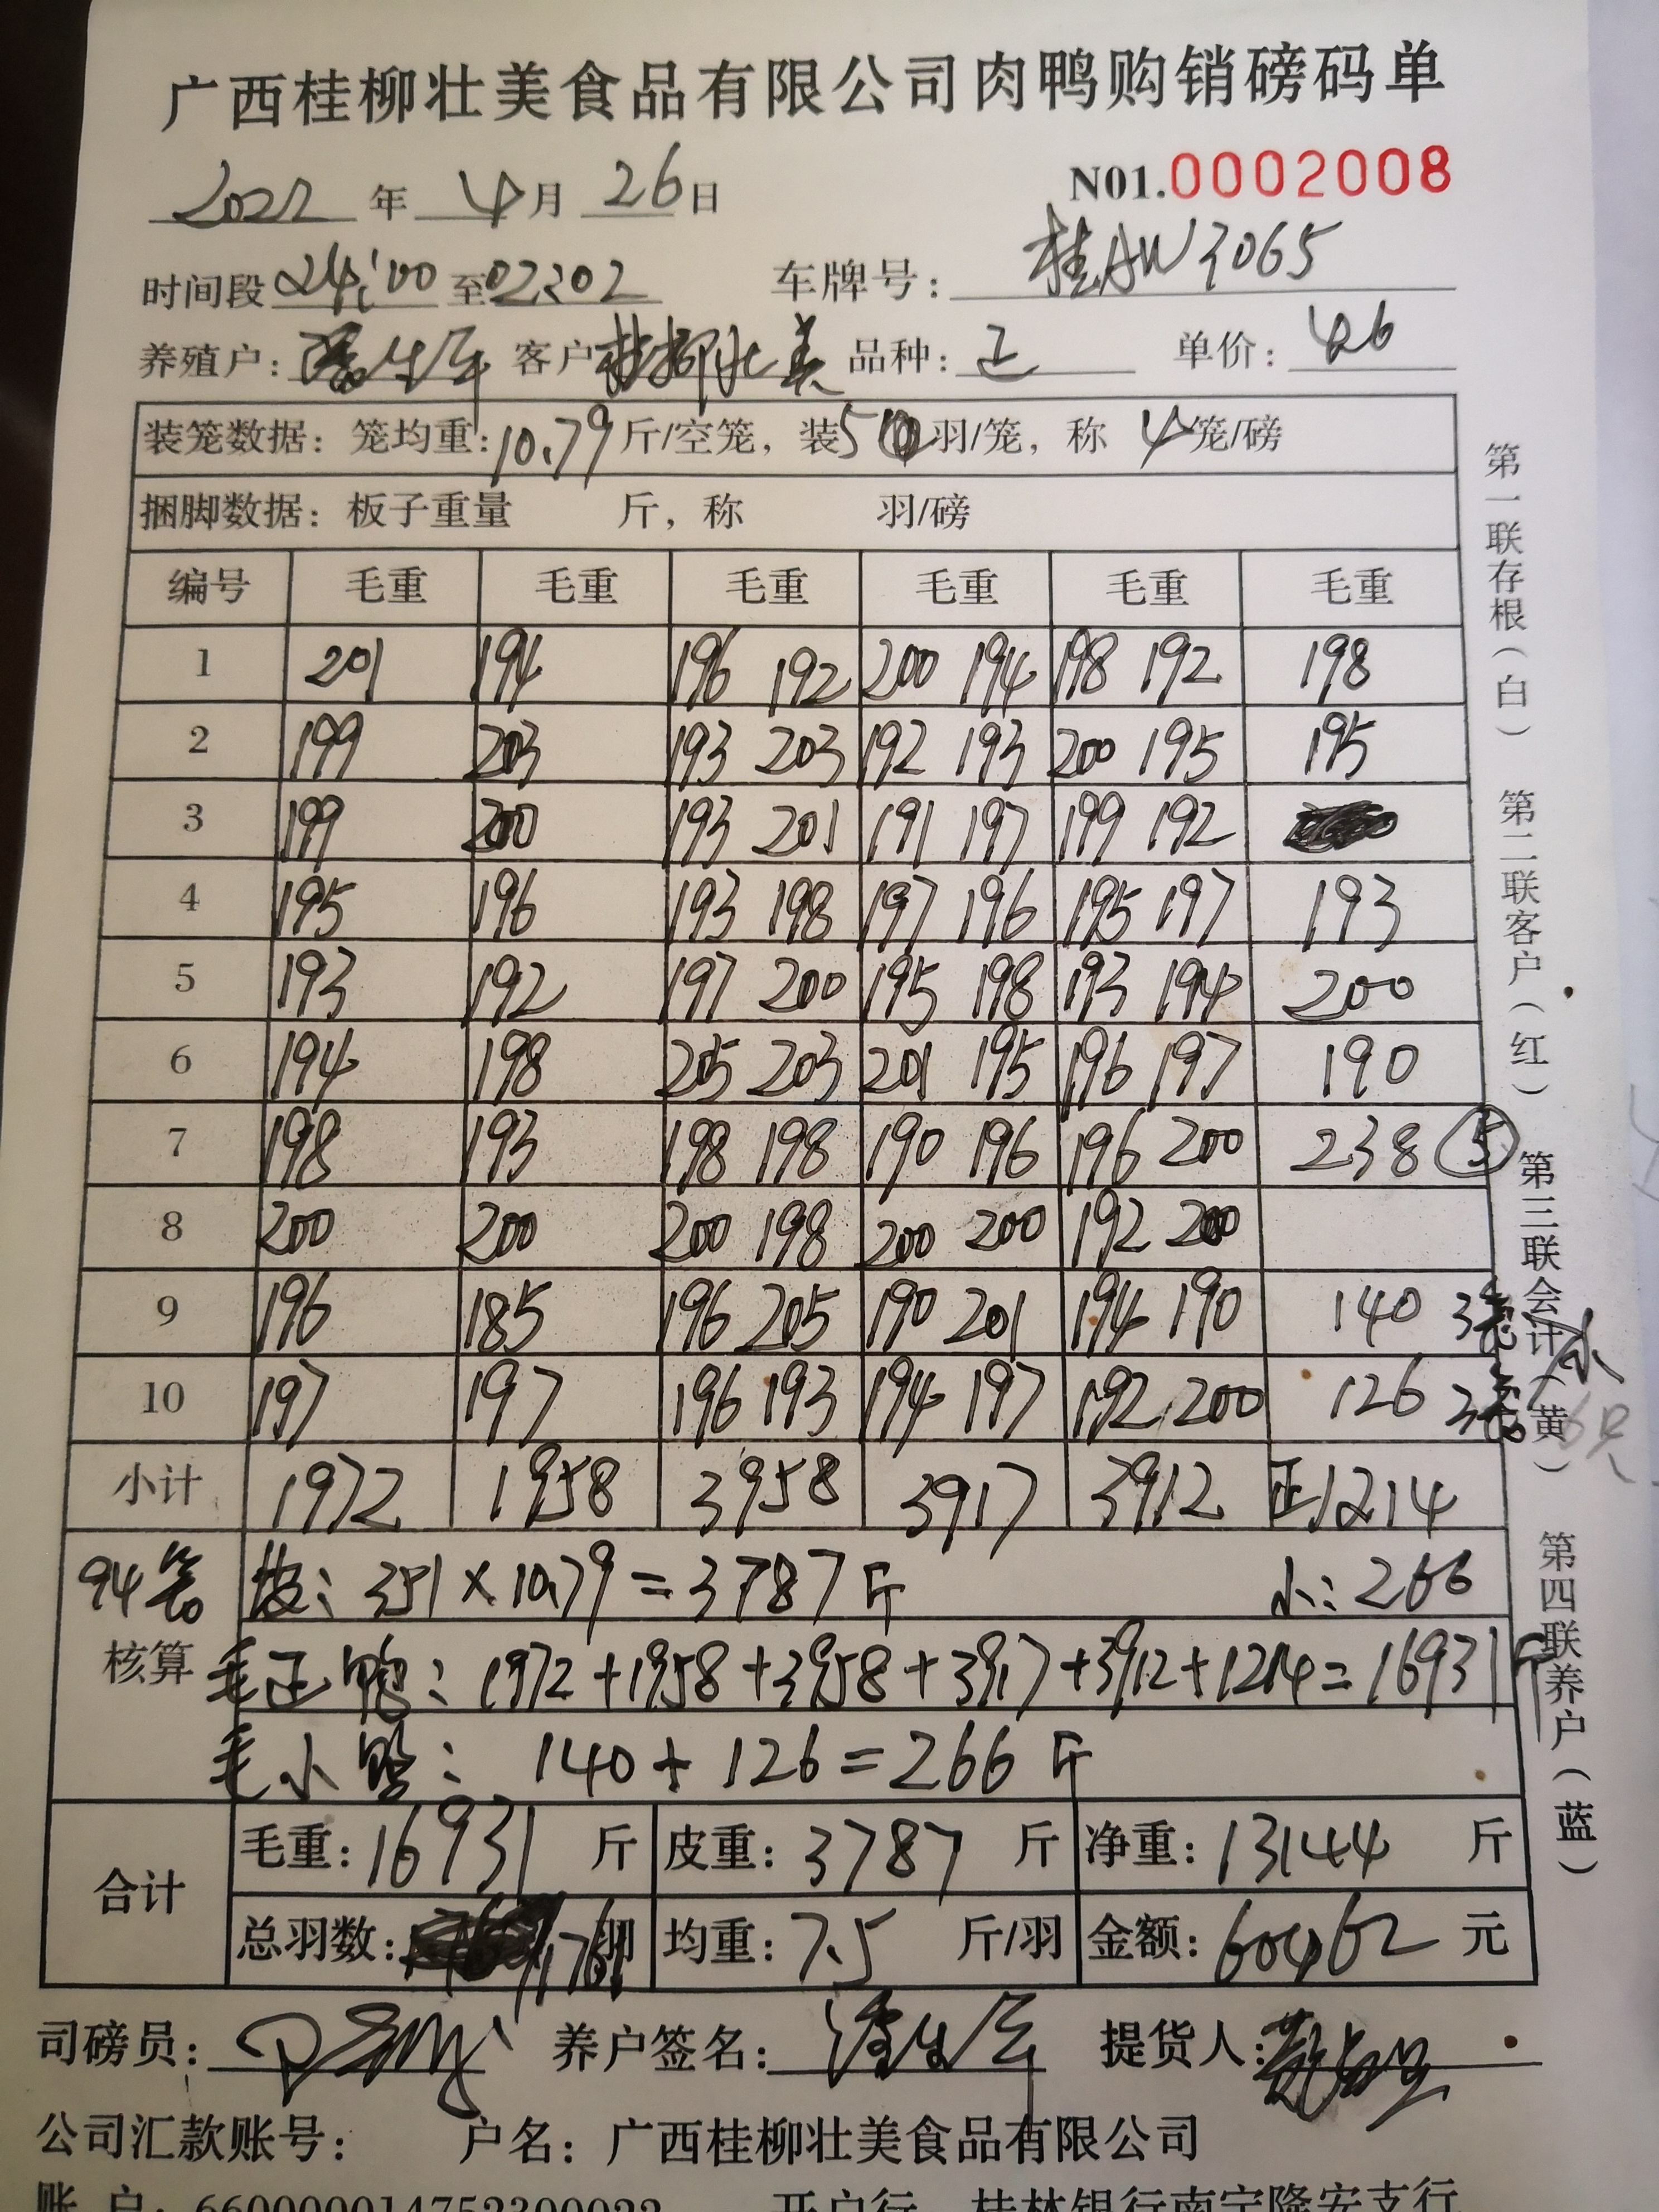 广西桂柳壮美食品有限公司肉鸭购销磅码单
2022 年 4 月 26 日 N01.0002008
时间段 24:00 至 02:02 车牌号: 桂AW3065
养殖户: 客户 桂柳壮美 品种: 正 单价: 4.6
装笼数据: 笼均重: 10.79 斤/空笼, 装5 羽/笼, 称 4 笼/磅
捆脚数据: 板子重量 斤, 称 羽/磅
编号 毛重 毛重 毛重 毛重 毛重 毛重
1 201 194 196 192 200 194 198 192 198
2 199 203 193 203 192 193 200 195 195
3 199 200 193 201 191 197 199 192
4 195 196 193 198 197 196 195 197 193
5 193 192 197 200 195 198 193 194 200
6 194 198 205 203 201 195 196 197 190
7 198 193 198 198 190 196 196 200 238 5
8 200 200 200 198 200 200 192 200
9 196 185 196 205 190 201 194 190 140 3笼
10 197 197 196 193 194 197 192 200 126 3笼
小
小计 1972 1958 3958 3917 3912 正1214
94笼 皮: 351×10.79=3787斤 小: 266
核算 毛正鸭: 1972+1958+3958+3917+3912+1214=16931斤
毛小鸭: 140+126=266斤
合计 毛重: 16931 斤 皮重: 3787 斤 净重: 13144 斤
总羽数: 羽 均重: 7.5 斤/羽 金额: 60462 元
司磅员: 养户签名: 提货人:
公司汇款账号: 户名: 广西桂柳壮美食品有限公司
账 户: 660000014752300022 开户行 桂林银行南宁隆安支行
第一联存根(白) 第二联客户(红) 第三联会计(黄) 第四联养户(蓝)